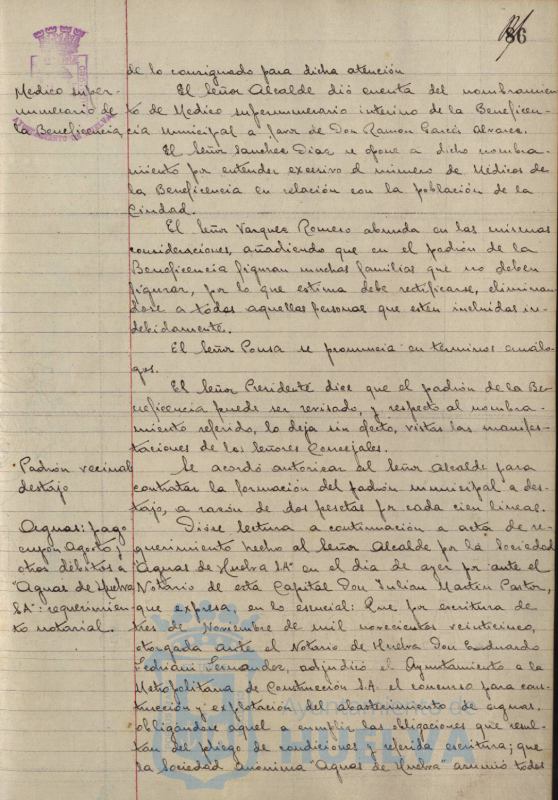 86
de lo consignado para dicha atención
Medico super-
numerario de
la Beneficencia
AYUNTAMIENTO DE HUELVA
El Señor Alcalde dió cuenta del nombramien
to de Medico supernumerario interino de la Beneficen-
cia Municipal a favor de Don Ramon Garcia Alvarez.
El Señor Sanchez Diaz se opone a dicho nombra-
miento por entender excesivo el número de Médicos de
la Beneficencia en relación con la población de la
Ciudad.
El Señor Vazquez Romero abunda en las mismas
consideraciones, añadiendo que en el padrón de la
Beneficencia figuran muchas familias que no deben
figurar, por lo que estima debe rectificarse, eliminan
dose a todas aquellas personas que esten incluidas in-
debidamente.
El Señor Pousa se pronuncia en términos análo-
gos.
El Señor Presidente dice que el padrón de la Be-
neficencia puede ser revisado, y respecto al nombra-
miento referido, lo deja sin efecto, vistas las manifes-
taciones de los Señores Concejales.
Padrón vecinal
destajo
Se acordó autorizar al Señor Alcalde para
contratar la formación del padrón municipal a des-
tajo, a razón de dos pesetas por cada cien lineas.
Aguas: pago
cupon Agosto y
otros débitos a
"Aguas de Huelva
SA": requerimien
to notarial.
Dióse lectura a continuación a acta de re-
querimiento hecho al Señor Alcalde por la Sociedad
"Aguas de Huelva SA" en el dia de ayer por ante el
Notario de esta Capital Don Julian Martin Pastor,
que expresa, en lo esencial: Que por escritura de
tres de Noviembre de mil novecientos veinticinco,
otorgada ante el Notario de Huelva Don Eduardo
Fernandez, adjudicó el Ayuntamiento a la
Metropolitana de Construcción S.A. el concurso para cons-
trucción y explotación del abastecimiento de aguas.
obligándose aquel a cumplir las obligaciones que resul-
tan del pliego de condiciones y referida escritura; que
la Sociedad anónima "Aguas de Huelva" asumió todos
Ayuntamiento de
HUELVA